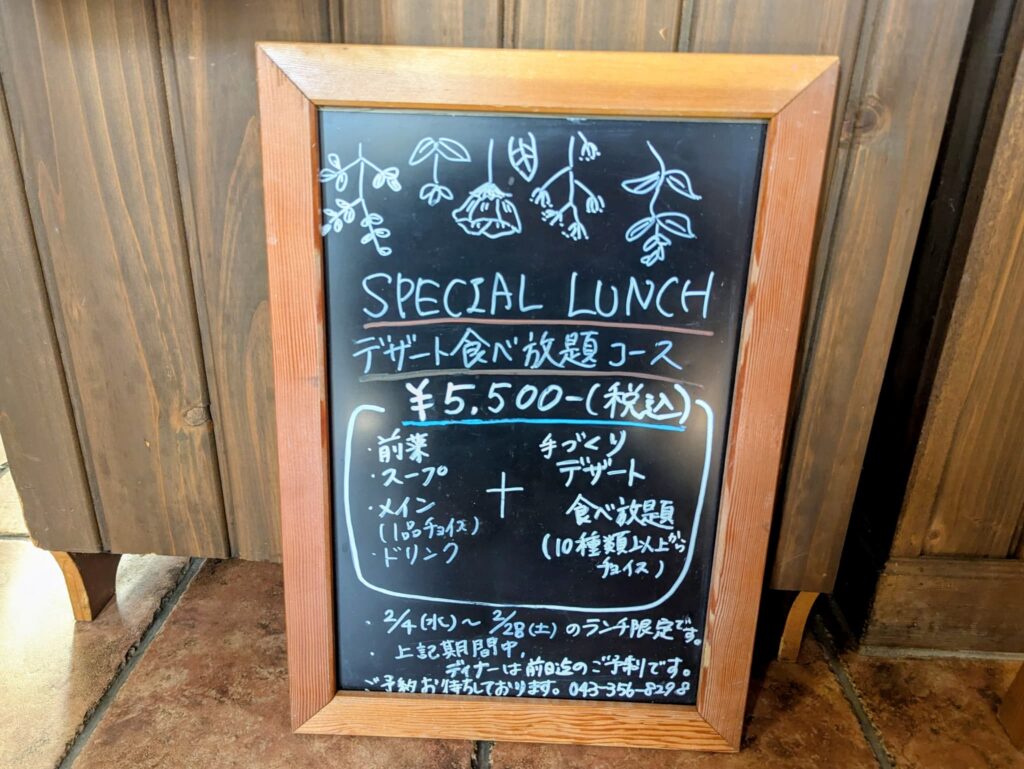 SPECIAL LUNCH
デザート食べ放題コース
¥5,500-(税込)
・前菜
・スープ
・メイン
(1品チョイス)
・ドリンク
+
手づくり
デザート
食べ放題
(10種類以上から
チョイス)
・2/4(水)~2/28(土)のランチ限定です。
・上記期間中、
ディナーは前日迄のご予約です。
ご予約お待ちしております。043-356-8298